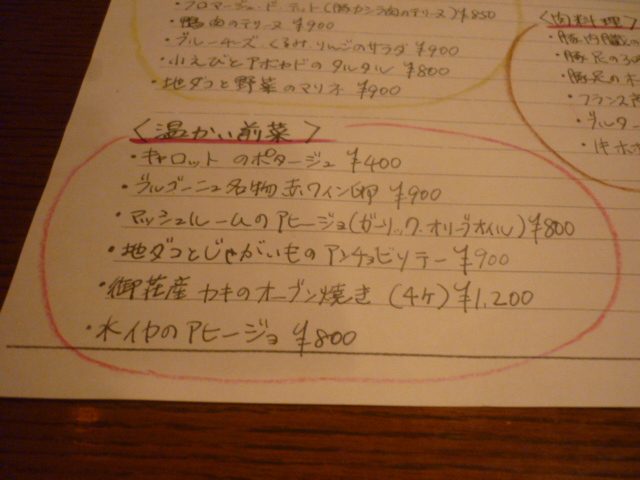 ・フロマージュ・ド・テット(豚カシラ肉のテリース)¥850
・鴨肉のテリース ¥900
・ブルーチーズ・くるみ・りんごのサラダ ¥900
・小えびとアボカドのタルタル ¥800
・地ダコと野菜のマリネ ¥900
<肉料理>
・豚内臓
・豚足の
・豚足の
・フランス産
・ブルター
<温かい前菜>
・キャロットのポタージュ ¥400
・ブルゴーニュ名物 赤ワイン卵 ¥900
・マッシュルームのアヒージョ(ガーリック・オリーブオイル)¥800
・地ダコとじゃがいものアンチョビソテー ¥900
・御荘産カキのオーブン焼き (4ヶ)¥1,200
・水イカのアヒージョ ¥800